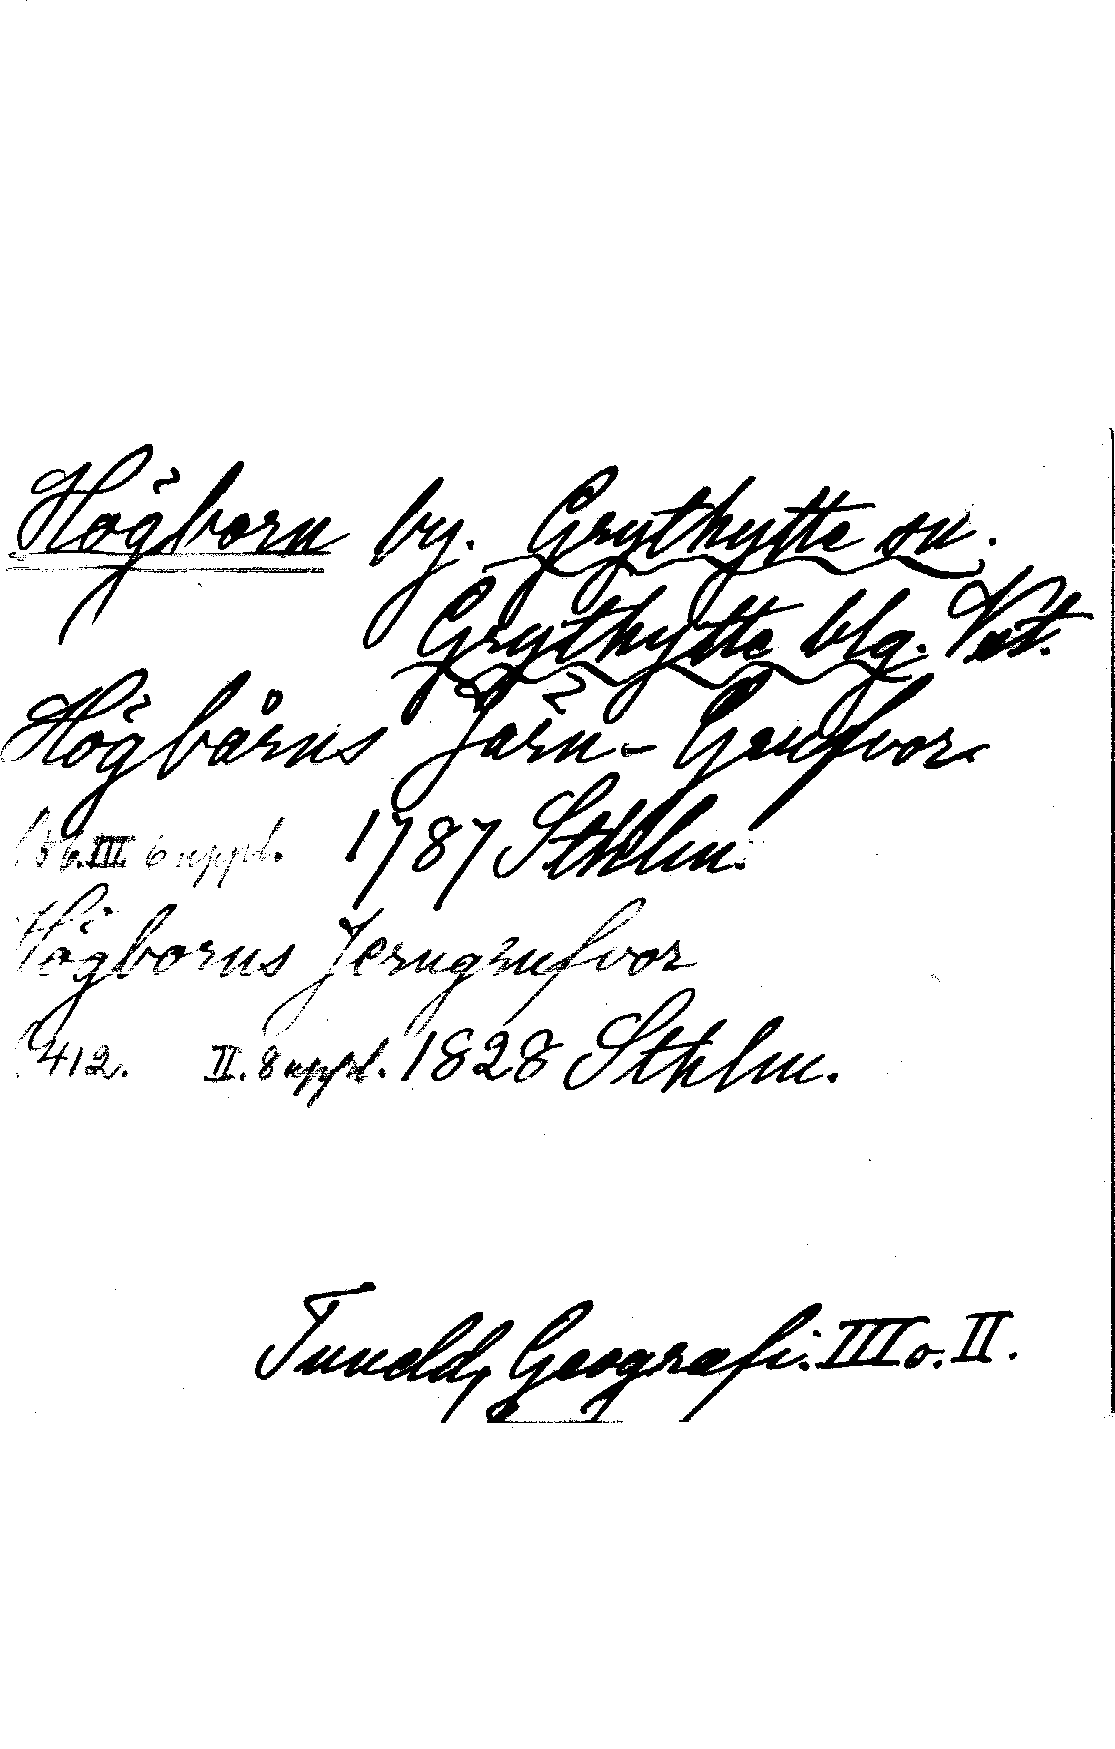 Högborn by. Grythytte sn.
Grythytte blg. Vst.
Högbårns Järn-Grufvor
III. 6 uppl. 1787 Sthlm.
Högborns Jerngrufvor
412. II. 8 uppl. 1828 Sthlm.
Tuneld, Geografi. III o. II.